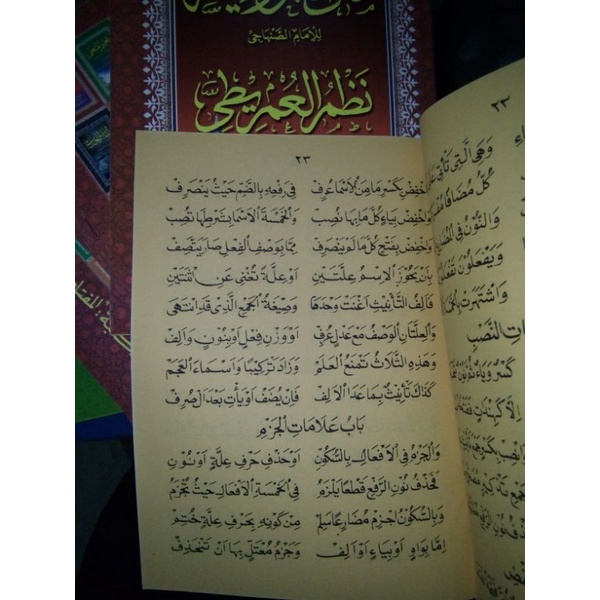 للإمام الصنهاجي
نظم العمريطي
٢٣
وَاخْفِضْ بِكَسْرٍ مَا مِنَ الْأَسْمَا عُرِفْ فِي رَفْعِهِ بِالضَّمِّ حَيْثُ يَنْصَرِفْ
وَاخْفِضْ بِيَاءٍ كُلَّ مَا بِهَا نُصِبْ وَالْخَمْسَةَ الْأَسْمَا بِشَرْطِهَا تُصِبْ
وَاخْفِضْ بِفَتْحٍ كُلَّ مَا لَمْ يَنْصَرِفْ مِمَّا بِوَصْفِ الْفِعْلِ صَارَ يَتَّصِفْ
بِأَنْ يَحُوزَ الْإِسْمُ عِلَّتَيْنِ أَوْ عِلَّةً تُغْنِي عَنِ اثْنَتَيْنِ
فَأَلِفُ التَّأْنِيثِ أَغْنَتْ وَحْدَهَا وَصِيغَةُ الْجَمْعِ الَّذِي قَدِ انْتَهَى
وَالْعِلَّتَانِ الْوَصْفُ مَعْ عَدْلٍ عُرِفْ أَوْ وَزْنِ فِعْلٍ أَوْ بِنُونٍ وَأَلِفْ
وَهَذِهِ الثَّلَاثُ تَمْنَعُ الْعَلَمْ وَزَادَ تَرْكِيبًا وَأَسْمَاءَ الْعَجَمْ
كَذَاكَ تَأْنِيثٌ بِمَا عَدَا الْأَلِفْ فَإِنْ يُضَفْ أَوْ يَأْتِ بَعْدَ الْ صُرِفْ
بَابُ عَلَامَاتِ الْجَزْمِ
وَالْجَزْمُ فِي الْأَفْعَالِ بِالسُّكُونِ أَوْ حَذْفِ حَرْفِ عِلَّةٍ أَوْ نُونِ
فَحَذْفُ نُونِ الرَّفْعِ قَطْعًا يَلْزَمُ فِي الْخَمْسَةِ الْأَفْعَالِ حَيْثُ تُجْزَمُ
وَبِالسُّكُونِ اجْزِمْ مُضَارِعًا سَلِمْ مِنْ كَوْنِهِ بِحَرْفِ عِلَّةٍ خُتِمْ
إِمَّا بِوَاوٍ أَوْ بِيَاءٍ أَوْ أَلِفْ وَجَزْمُ مُعْتَلٍّ بِهَا أَنْ تَنْحَذِفْ
٢٣
وَهِيَ الَّتِي تَأْتِي
كُلُّ مُضَافًا
وَالنُّونُ فِي
وَيَفْعَلُونَ
وَاشْتَهَرَتْ